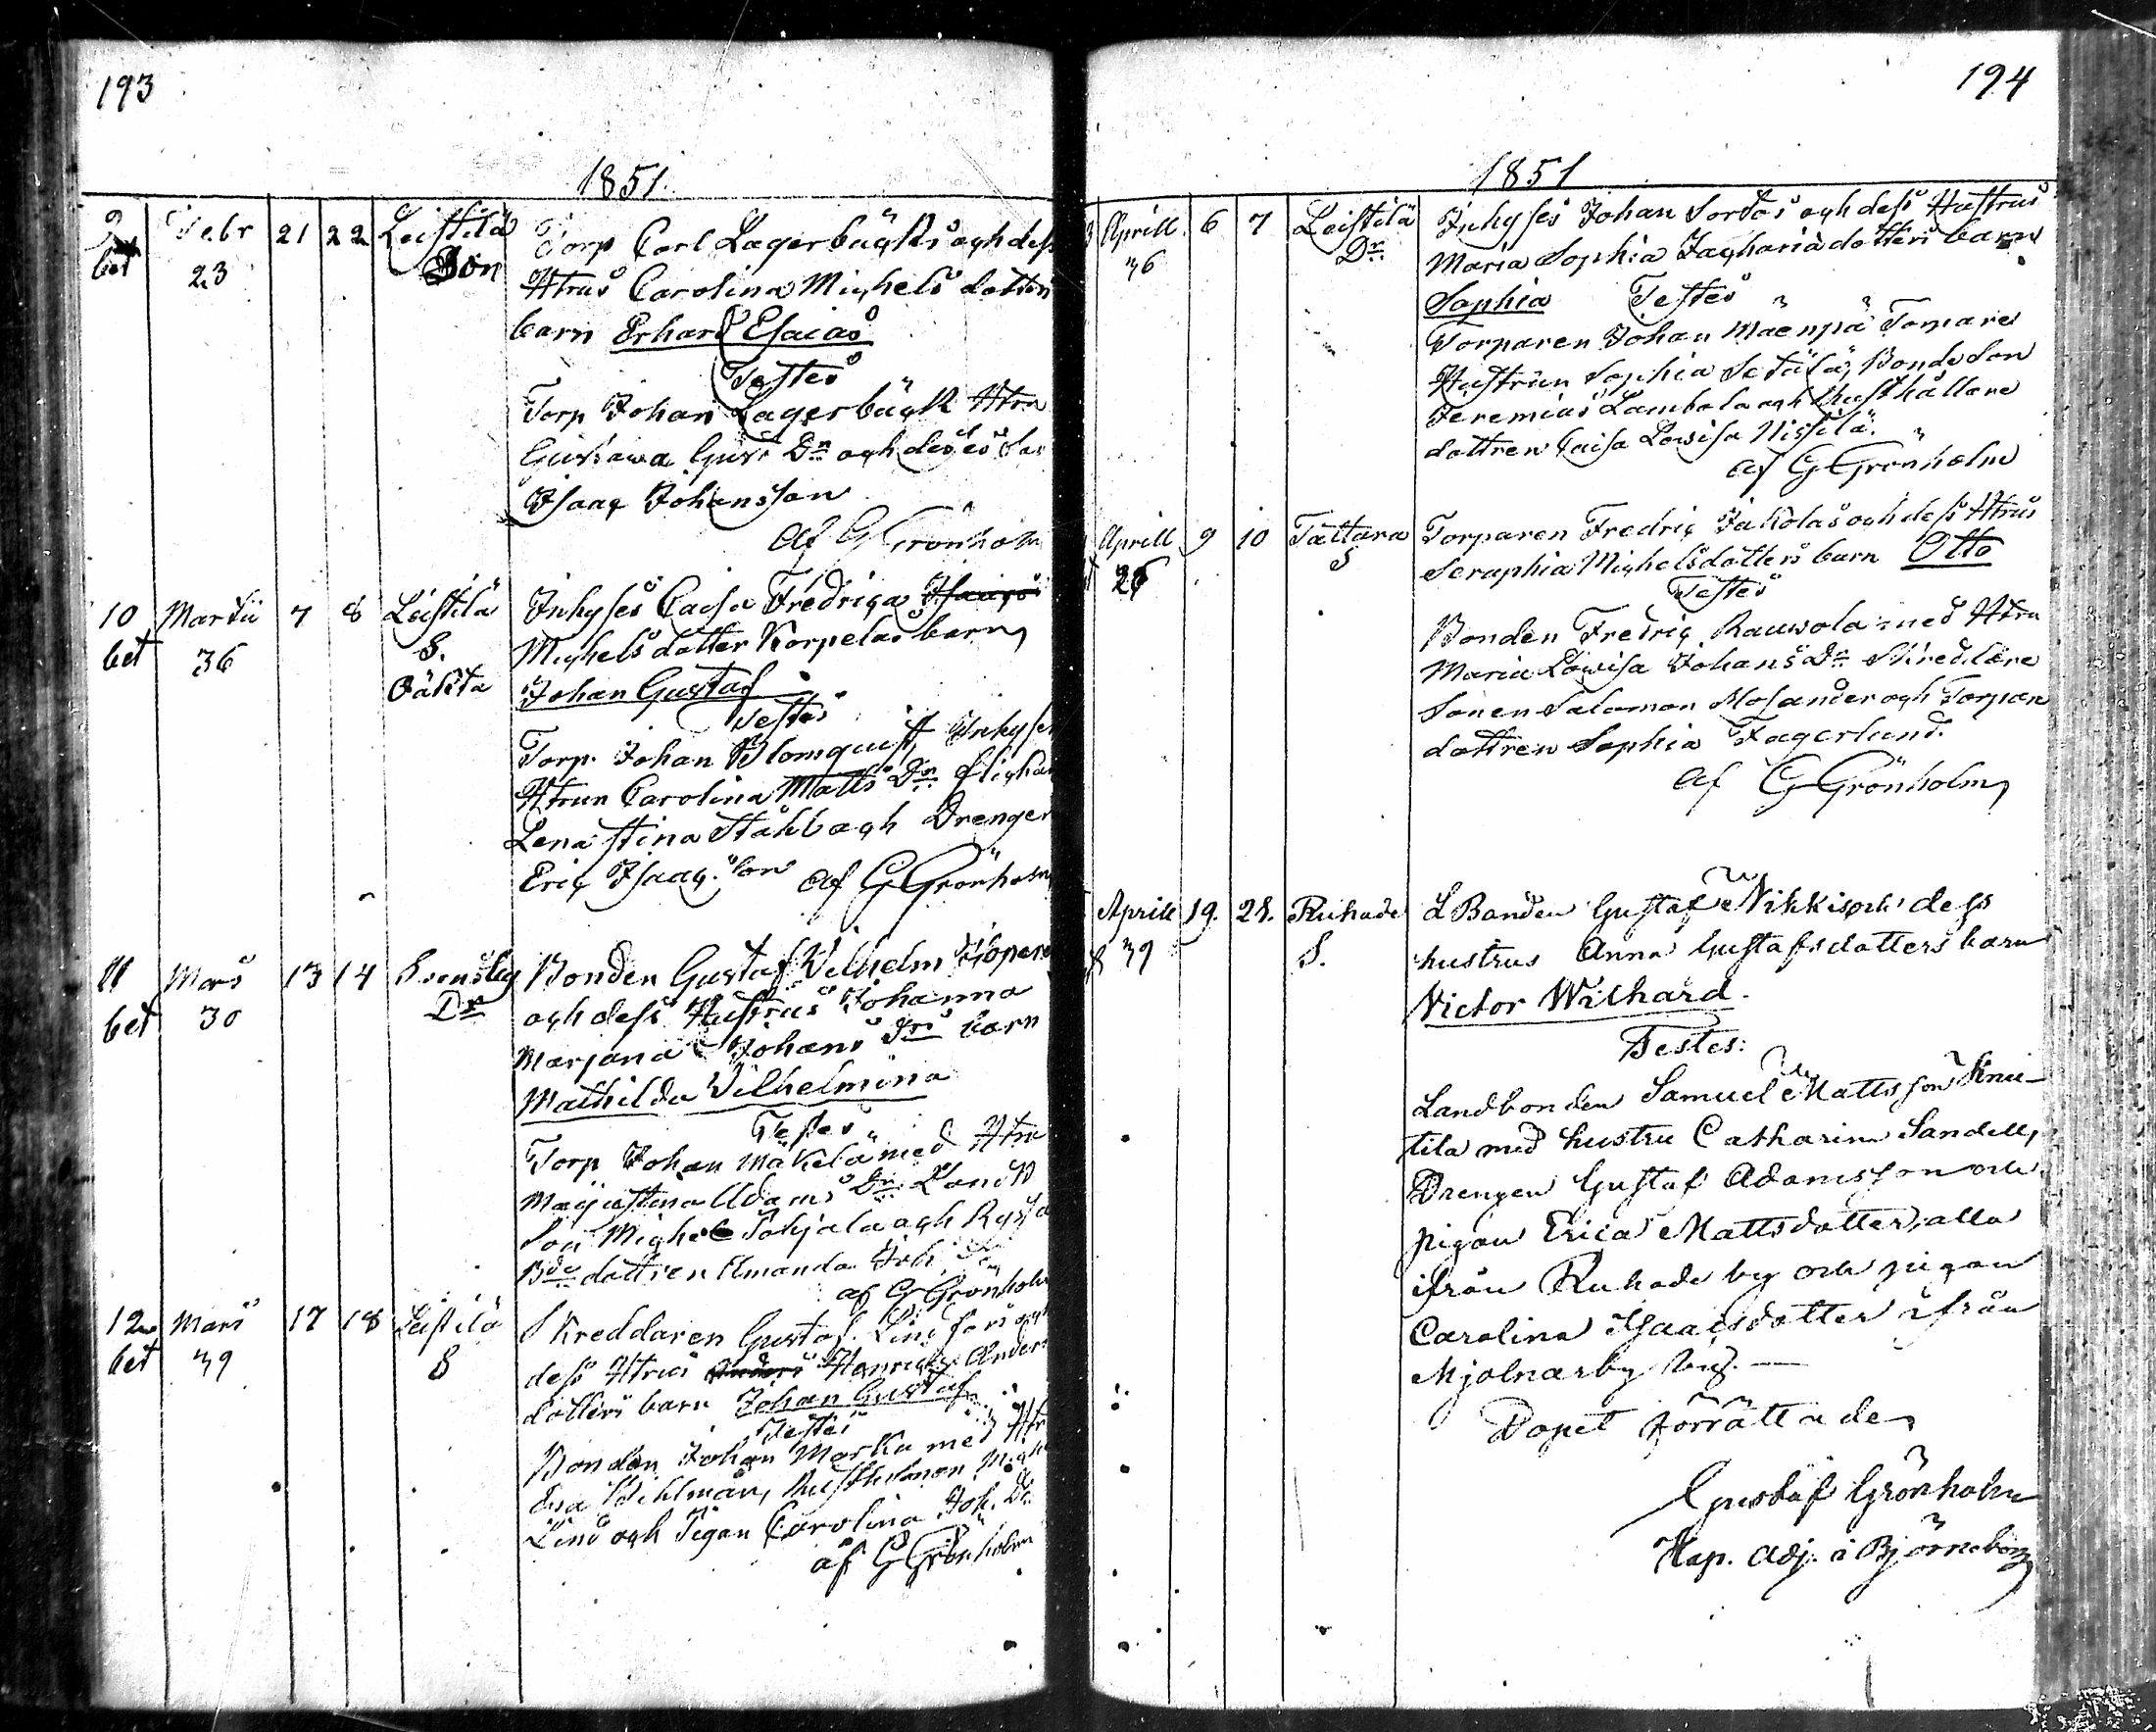 193
1851.
9 Febr 21 22 Leistilä Torp Carl Lagerbäcks och dess
bet 23 Son Htrus Carolina Michels dotters
barn Erhard Esaias
Testes
Torp Johan Lagerbäck Htru
Gustawa Gust. Dr och deses Son
Isaac Johansson
af G Grönholm
10 Martii 7 8 Leistilä Inhyses Caisa Fredrica
bet 36 S. Michelsdotter Korpelas barn
Johan Gustaf
Testes
Torp. Johan Blomquist, Inhyses
Htrun Carolina Matts Dr
Lena Stina och Drengen
Eric Isaac.son af G Grönholm
11 Mars 13 14 Bonden Gustaf Wilhelm
bet 30 Dr och dess Hustrus Johanna
Marjana Johans Drs barn
Mathilda Wilhelmina
Testes
Torp Johan Mäkelä med Htru
Majastina Adams Dr
Son Michel och
dottren Amanda Joh.
af G Grönholm
12 Mars 17 18 Leistilä Skreddaren Gustaf och
bet 39 S dess Htrus Henrica Anders
dotters barn Johan Gustaf
Testes
Bonden Johan Marku med Htru
Lind och Pigan Carolina Joh. Dr
af G Grönholm
194
1851
Aprill 6 7 Leistilä Inhyses Johan Sordos och dess Hustrus
36 Dr. Maria Sophia Zachariadotters barn
Sophia Testes
Torparen Johan Mäenpä Tomare
Hustrun Sophia Setälä, Bonde Son
Jeremias Lambala och Rusthållare
dottren Caisa Lowisa Nissilä.
af G Grönholm
Aprill 9 10 Tattara Torparen Fredric Jakolas och dess Htrus
S Seraphia Michelsdotters barn Otto
Testes
Bonden Fredric Rauwola med Htru
Maria Lowisa Johans Dr Skreddare
Sonen Salomon Mosander och Torpare
dottren Sophia Fagerlund.
af G Grönholm
Aprill 19. 21. Ruhade L Bonden Gustaf Nikkis och dess
39 S. hustrus Anna Gustafsdotters barn
Victor Wilhard.
Testes:
Landbonden Samuel Mattsson Knu-
tila med hustru Catharina Sandell,
Drengen Gustaf Adamsson och
pigan Erica Mattsdotter, alla
ifrån Ruhade by och pigan
Carolina Isaacsdotter ifrån
Mjolnarby
Dopet förrättade
Gustaf Grönholm
Kap. Adj. i Björneborg